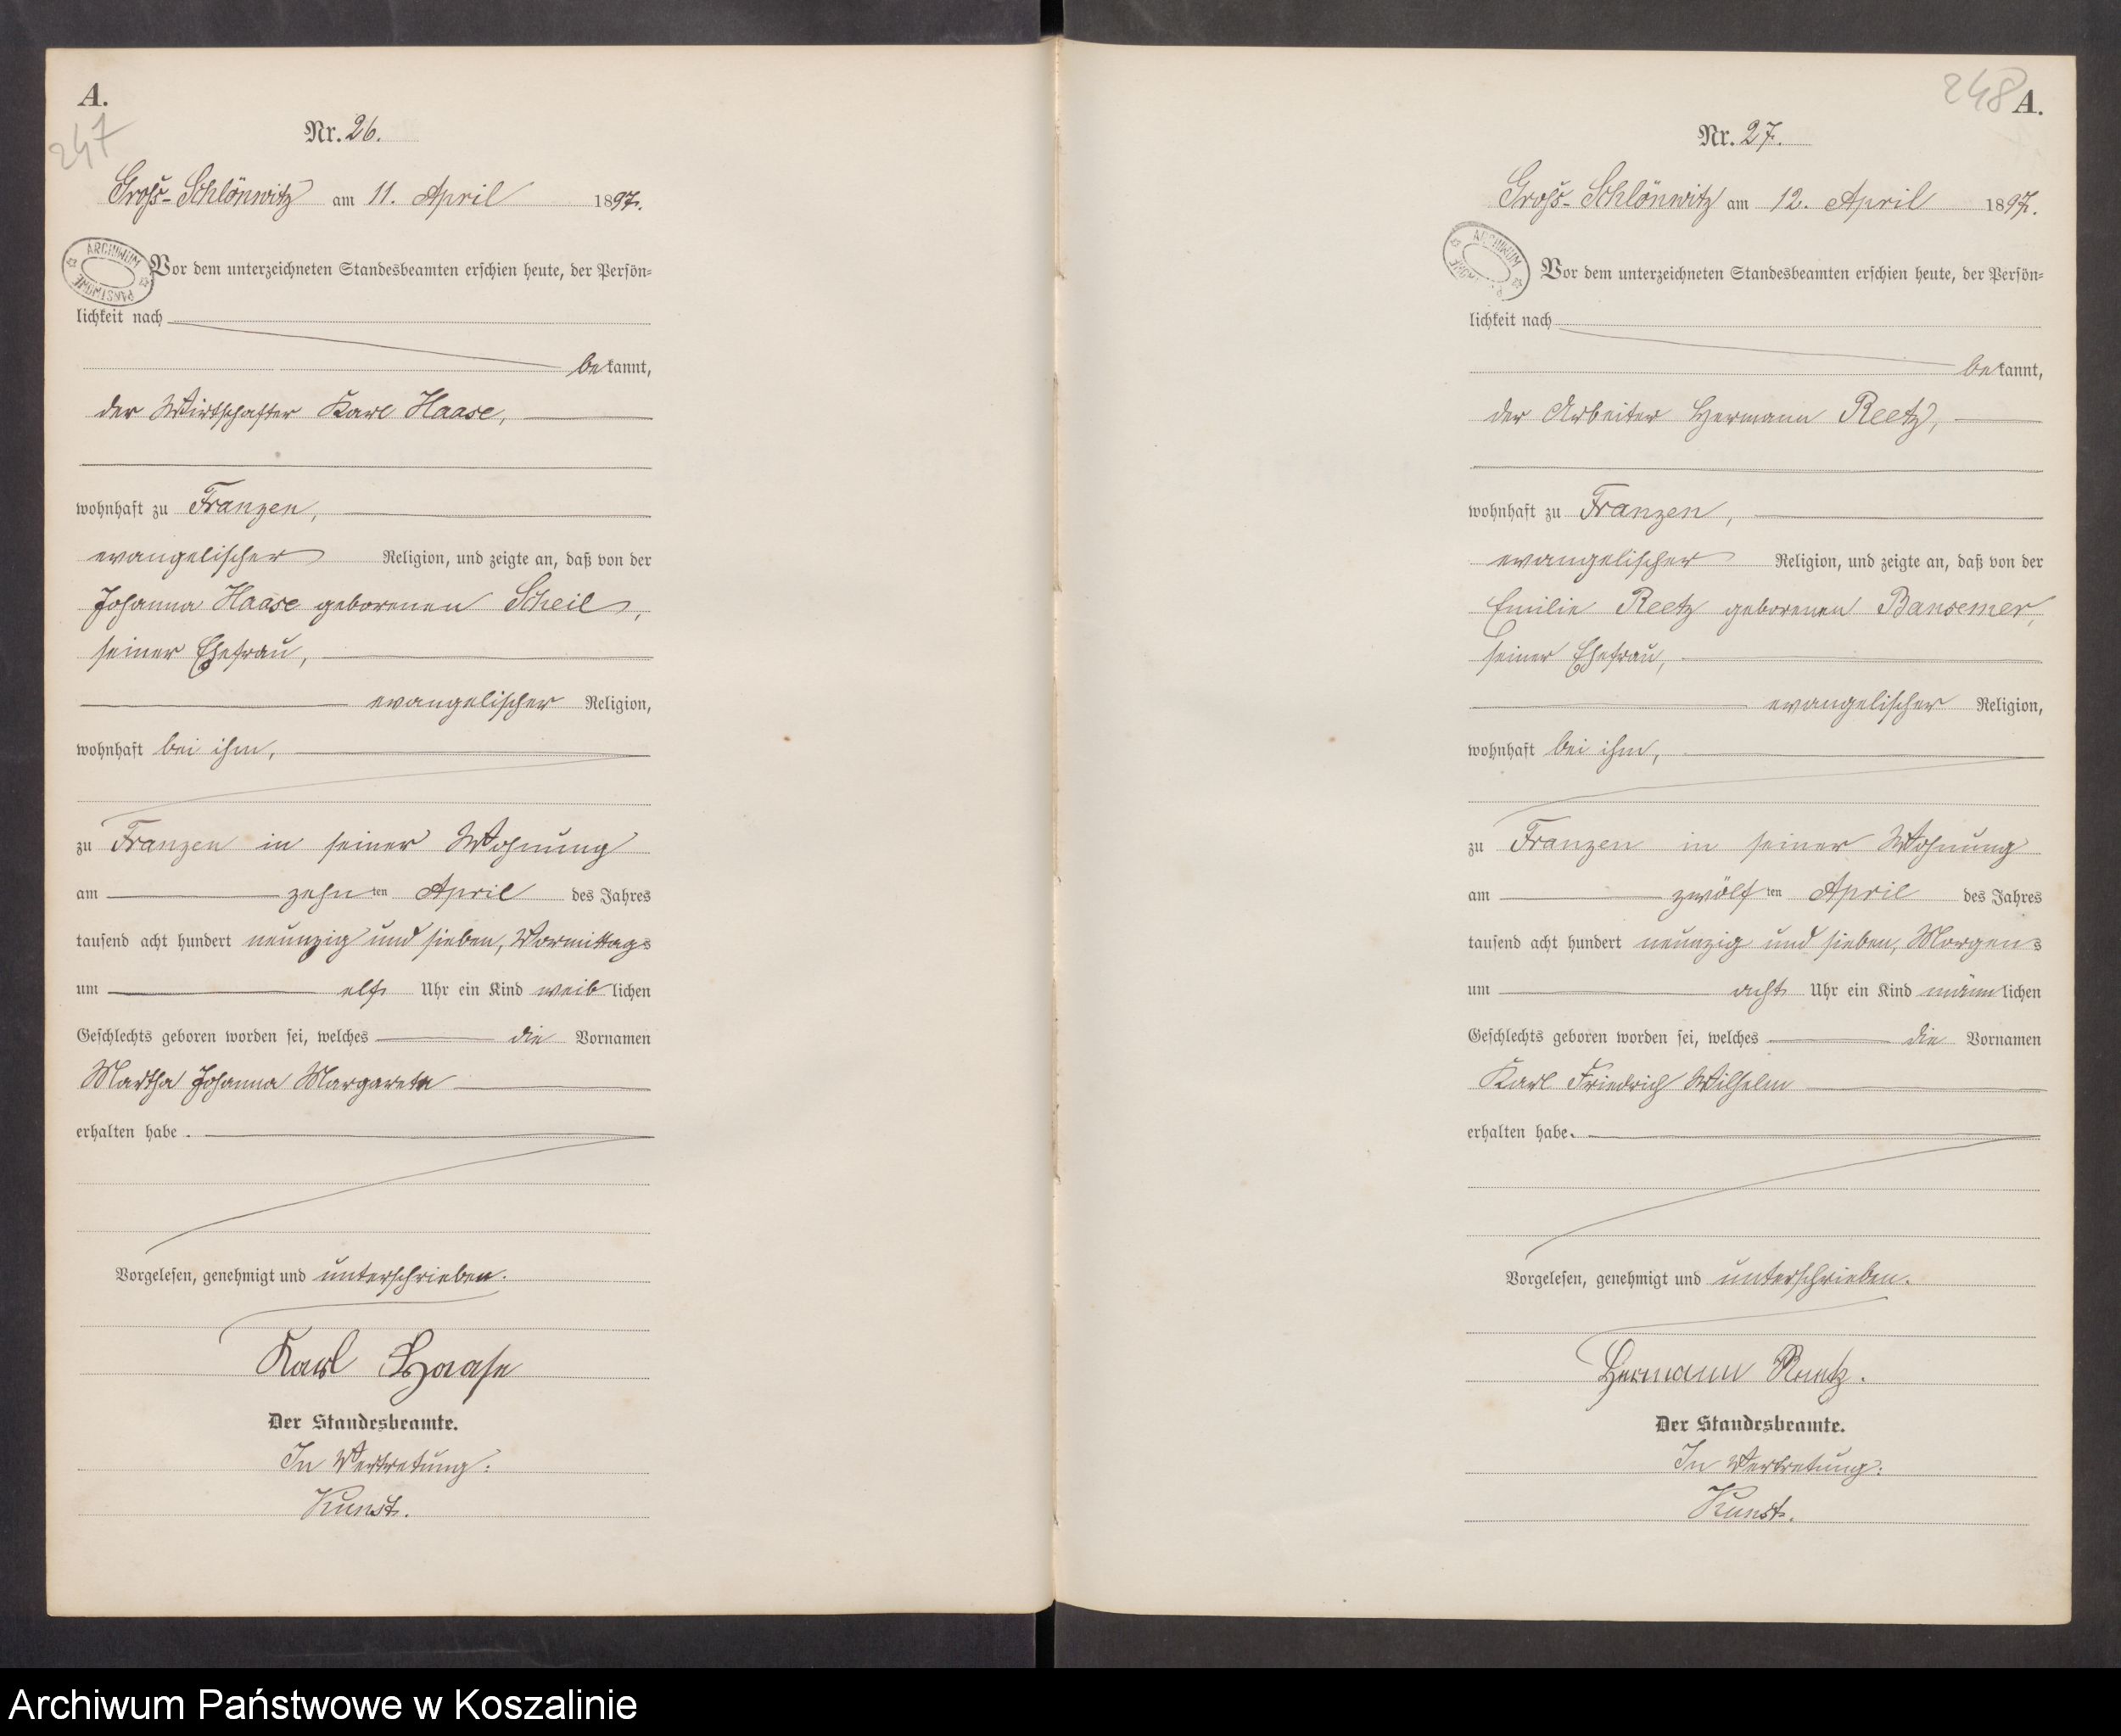 A.
247
Nr. 26.
Groß-Schlönwitz am 11. April 1897.
ARCHIWUM PAŃSTWOWE
Vor dem unterzeichneten Standesbeamten erschien heute, der Persön=
lichkeit nach
bekannt,
der Wirtschafter Karl Haase,
wohnhaft zu Franzen,
evangelischer Religion, und zeigte an, daß von der
Johanna Haase geborenen Scheil,
seiner Ehefrau,
evangelischer Religion,
wohnhaft bei ihm,
zu Franzen in seiner Wohnung
am zehnten April des Jahres
tausend acht hundert neunzig und sieben, Vormittags
um elf Uhr ein Kind weiblichen
Geschlechts geboren worden sei, welches die Vornamen
Martha Johanna Margarete
erhalten habe.
Vorgelesen, genehmigt und unterschrieben.
Karl Haase
Der Standesbeamte.
In Vertretung:
Kunst.
248
A.
Nr. 27.
Groß-Schlönwitz am 12. April 1897.
ARCHIWUM PAŃSTWOWE
Vor dem unterzeichneten Standesbeamten erschien heute, der Persön=
lichkeit nach
bekannt,
der Arbeiter Hermann Reetz,
wohnhaft zu Franzen,
evangelischer Religion, und zeigte an, daß von der
Emilie Reetz geborenen Bansemer,
seiner Ehefrau,
evangelischer Religion,
wohnhaft bei ihm,
zu Franzen in seiner Wohnung
am zwölften April des Jahres
tausend acht hundert neunzig und sieben, Morgens
um acht Uhr ein Kind männlichen
Geschlechts geboren worden sei, welches die Vornamen
Karl Friedrich Wilhelm
erhalten habe.
Vorgelesen, genehmigt und unterschrieben.
Hermann Reetz.
Der Standesbeamte.
In Vertretung:
Kunst.
Archiwum Państwowe w Koszalinie